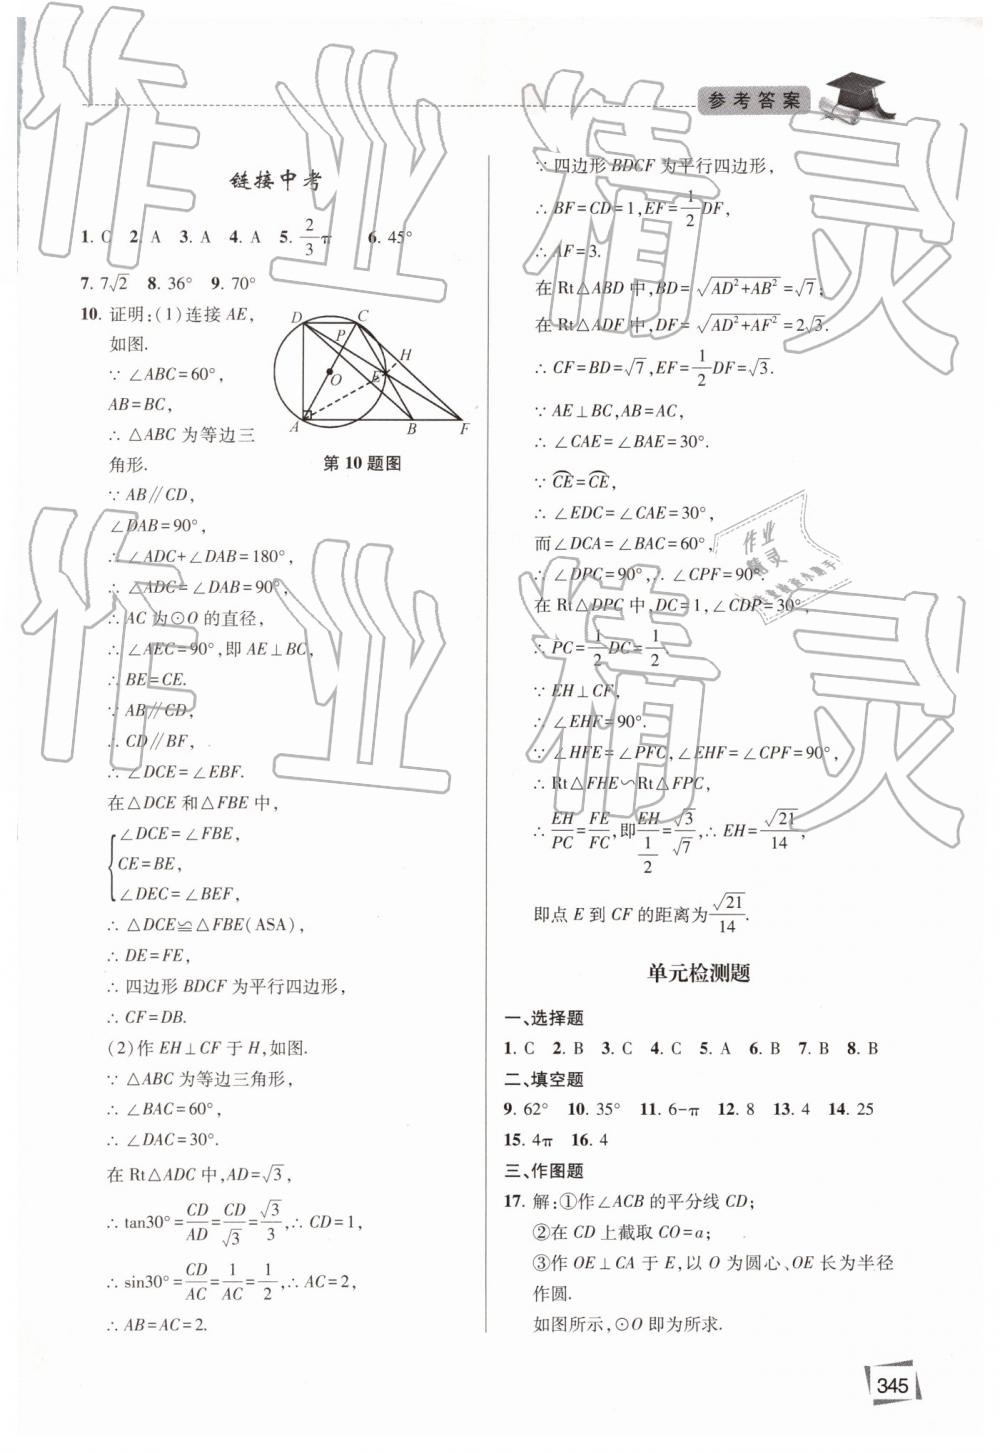 参考答案
链接中考
1. C 2. A 3. A 4. A 5. 2/3π 6. 45°
7. 7√2 8. 36° 9. 70°
10. 证明:(1)连接 AE,
如图.
∵ ∠ABC=60°,
AB=BC,
∴ △ABC 为等边三
角形.
∵ AB∥CD,
∠DAB=90°,
∴ ∠ADC+∠DAB=180°,
∴ ∠ADC=∠DAB=90°,
∴ AC 为⊙O 的直径,
∴ ∠AEC=90°,即 AE⊥BC,
∴ BE=CE.
∵ AB∥CD,
∴ CD∥BF,
∴ ∠DCE=∠EBF.
在△DCE 和△FBE 中,
{∠DCE=∠FBE,
CE=BE,
∠DEC=∠BEF,
∴ △DCE≌△FBE(ASA),
∴ DE=FE,
∴ 四边形 BDCF 为平行四边形,
∴ CF=DB.
(2)作 EH⊥CF 于 H,如图.
∵ △ABC 为等边三角形,
∴ ∠BAC=60°,
∴ ∠DAC=30°.
在 Rt△ADC 中,AD=√3,
∴ tan30°=CD/AD=CD/√3=√3/3,∴ CD=1,
∴ sin30°=CD/AC=1/AC=1/2,∴ AC=2,
∴ AB=AC=2.
D C P H O E A B F
第 10 题图
∵ 四边形 BDCF 为平行四边形,
∴ BF=CD=1,EF=1/2DF,
∴ AF=3.
在 Rt△ABD 中,BD=√(AD²+AB²)=√7;
在 Rt△ADF 中,DF=√(AD²+AF²)=2√3.
∴ CF=BD=√7,EF=1/2DF=√3.
∵ AE⊥BC,AB=AC,
∴ ∠CAE=∠BAE=30°.
∵ C͡E=C͡E,
∴ ∠EDC=∠CAE=30°,
而∠DCA=∠BAC=60°,
∴ ∠DPC=90°,∴ ∠CPF=90°.
在 Rt△DPC 中,DC=1,∠CDP=30°,
∴ PC=1/2DC=1/2.
∵ EH⊥CF,
∴ ∠EHF=90°.
∵ ∠HFE=∠PFC,∠EHF=∠CPF=90°,
∴ Rt△FHE∽Rt△FPC,
∴ EH/PC=FE/FC,即EH/(1/2)=√3/√7,∴ EH=√21/14,
即点 E 到 CF 的距离为√21/14.
单元检测题
一、选择题
1. C 2. B 3. C 4. C 5. A 6. B 7. B 8. B
二、填空题
9. 62° 10. 35° 11. 6-π 12. 8 13. 4 14. 25
15. 4π 16. 4
三、作图题
17. 解:①作∠ACB 的平分线 CD;
②在 CD 上截取 CO=a;
③作 OE⊥CA 于 E,以 O 为圆心、OE 长为半径
作圆.
如图所示,⊙O 即为所求.
345
作业精灵
作业精灵
作业
精灵